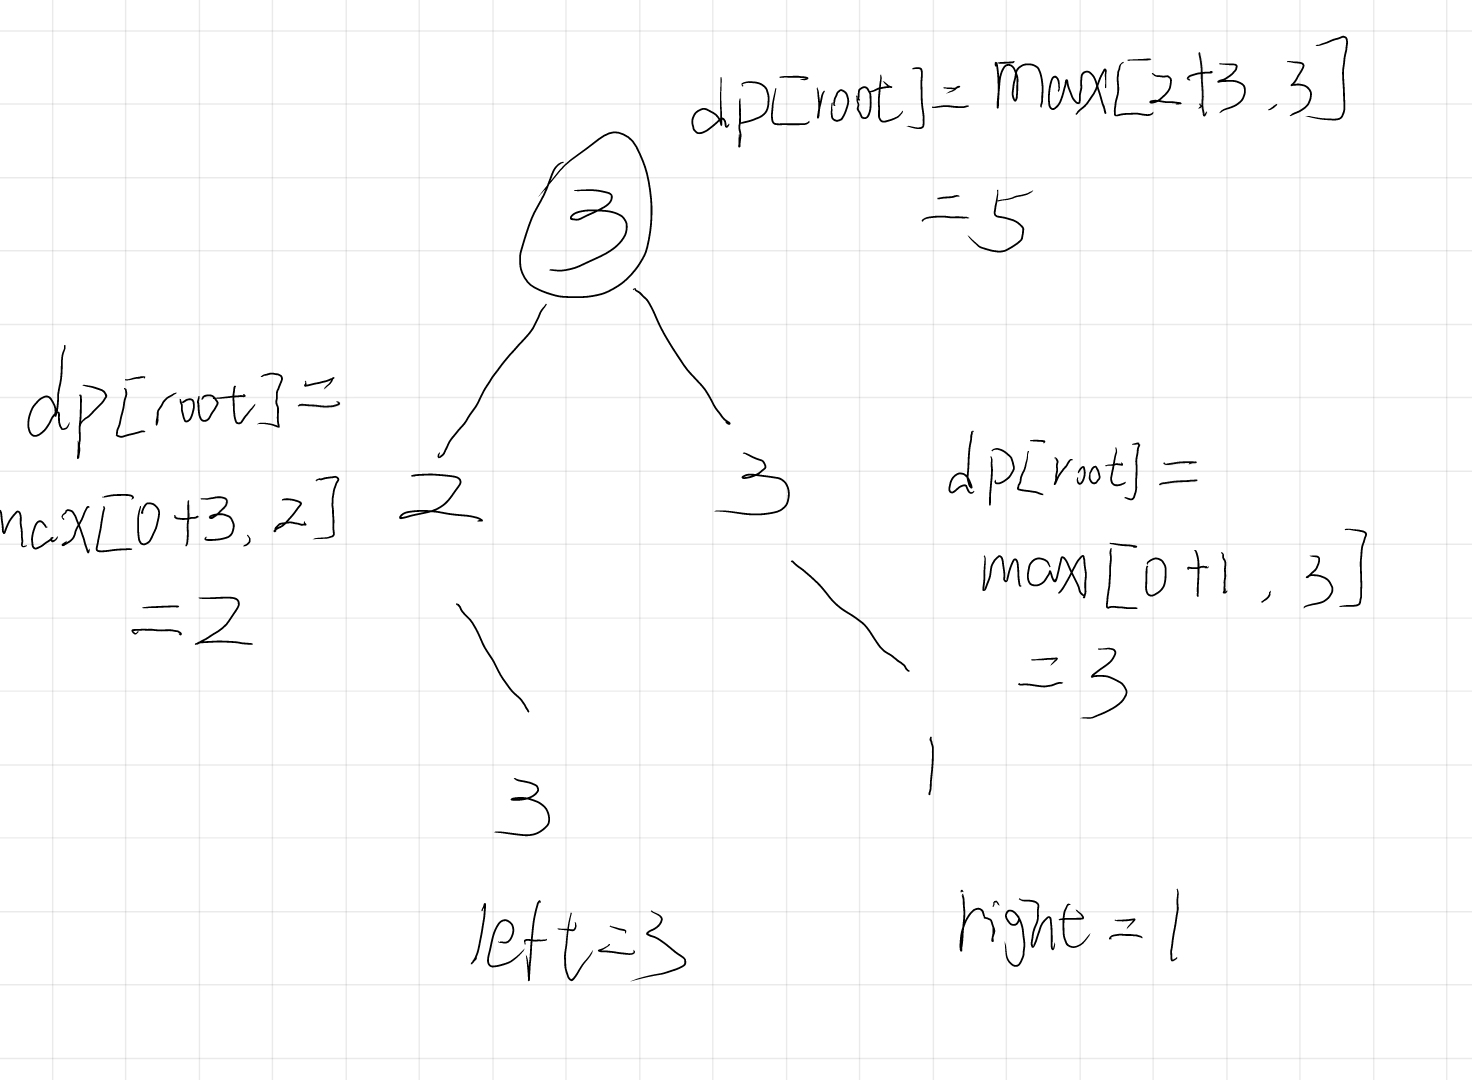 dp[root]= max[2+3,3]
=5
3
dp[root]=
max[0+3,2]
=2
2
3
dp[root]=
max[0+1,3]
=3
3
1
left=3
right=1